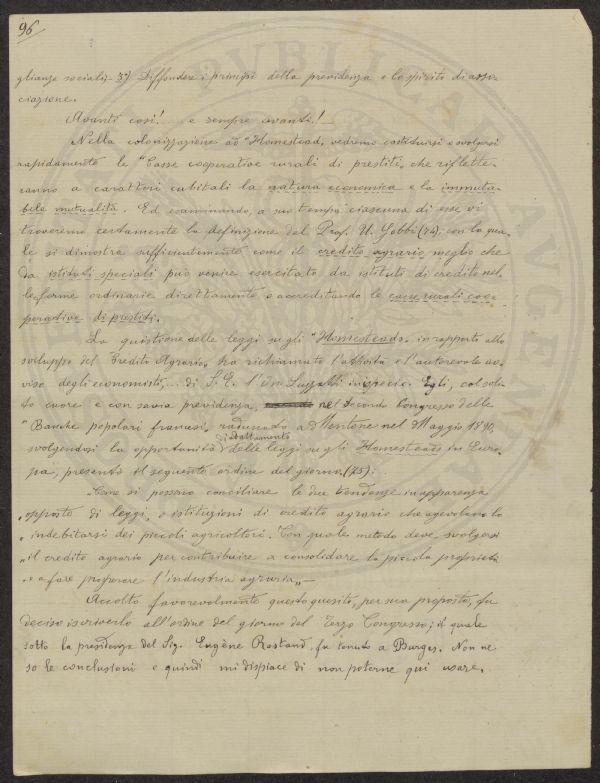 96
glianze sociali; - 3°) Diffondere i principi della previdenza e lo spirito di asso-
ciazione.
Avanti così! .... e sempre avanti! __
Nella colonizzazione ad "Homestead" vedremo costituirsi e svolgersi
rapidamente le "Casse cooperative rurali di prestiti" che riflette-
ranno a caratteri cubitali la natura economica e la immuta-
bile mutualità. Ed esaminando, a suo tempo ciascuna di esse vi
troveremo certamente la definizione del Prof. U. Gobbi (74); con la qua-
le si dimostra sufficientemente come il credito agrario, meglio che
da istituti speciali può venire esercitato da istituti di credito nel-
le forme ordinarie direttamente o accreditando le casse rurali coo-
perative di prestiti.
La quistione delle leggi sugli "Homesteads" in rapporto allo
sviluppo del Credito Agrario, ha richiamato l'attività e l'autorevole av-
viso degli economisti,... di S. E. l'on Luzzatti in ispecie. Egli, col solo
to cuore e con savia previdenza, nel secondo Congresso delle
"Banche popolari francesi, radunato a Mentone nel Maggio 1890,
svolgendosi la opportunità di adattamento delle leggi sugli Homesteads in Euro-
pa, presentò il seguente ordine del giorno (75):
"Come si possono conciliare le due tendenze in apparenza
" opposte di leggi, o istituzioni di credito agrario che agevolano lo
" indebitarsi dei piccoli agricoltori. Con quale metodo deve svolgersi
" il credito agrario per contribuire a consolidare la piccola proprietà
" e a fare prosperare l'industria agraria" —
Accolto favorevolmente questo quesito, per sua proposta, fu
deciso iscriverlo all'ordine del giorno del Terzo Congresso; il quale
sotto la presidenza del Sig. Eugène Rostand, fu tenuto a Burges. Non ne
so le conclusioni e quindi mi dispiace di non poterne qui usare.